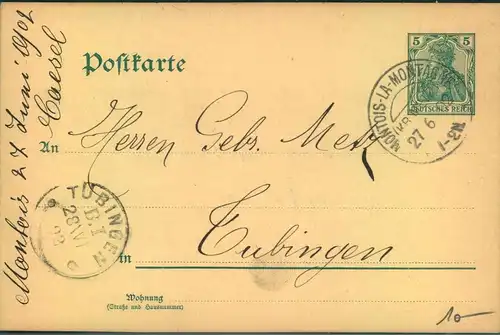 Montois 27 Juni 1902
Caesel
Postkarte
5
DEUTSCHES REICH
MONTOIS-LA-MONTAGNE
27 6
1-2N
An
Herren Gebr. Metz
TÜBINGEN
D.I
28 VI
02
in
Tubingen
Wohnung
(Straße und Hausnummer)
10